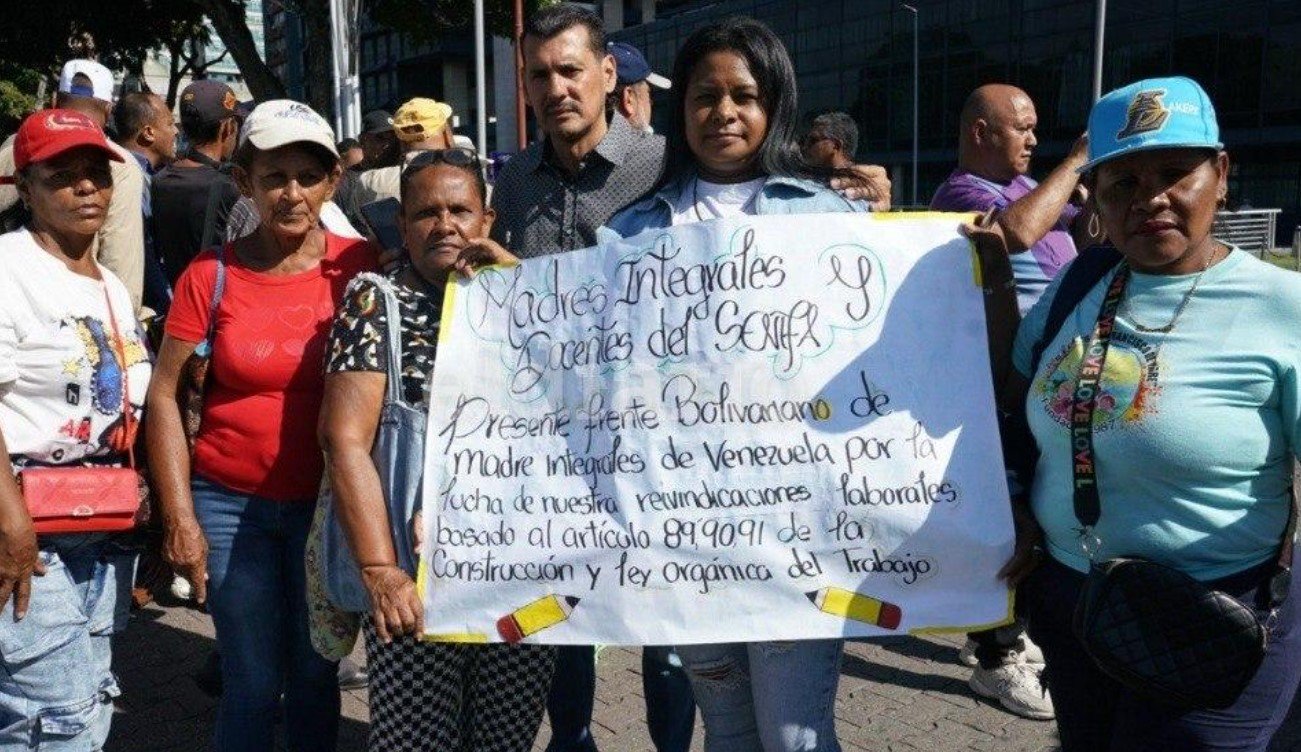 Madres Integrales Y
Docentes del SENIFA Y
Presente frente Bolivariano de
madre integrales de Venezuela por la
lucha de nuestra reivindicaciones laborales
basado al artículo 89,90,91 de la
Construcción y ley orgánica del Trabajo
LAKERS
LOVE LOVE L